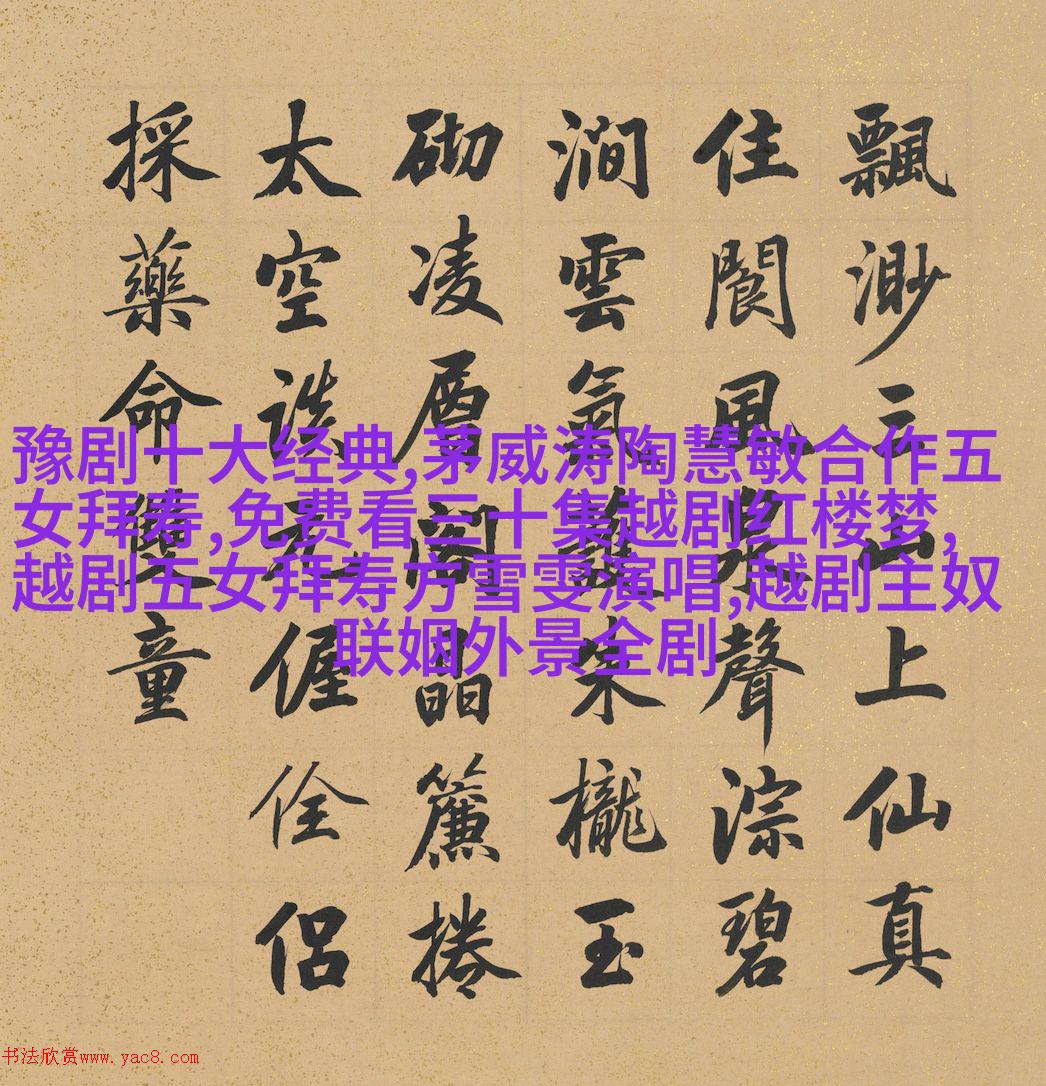 飄渺三山上仙真
住閬風泉聲淙碧
澗雲氣護櫳玉
砌凌層閣晶簾捲
太空談元偓佺侶
採藥命雙童
豫剧十大经典,茅威涛陶慧敏合作五
女拜寿,免费看三十集越剧红楼梦,
越剧五女拜寿方雪雯演唱,越剧主奴
联姻外景全剧
书法欣赏www.yac8.com